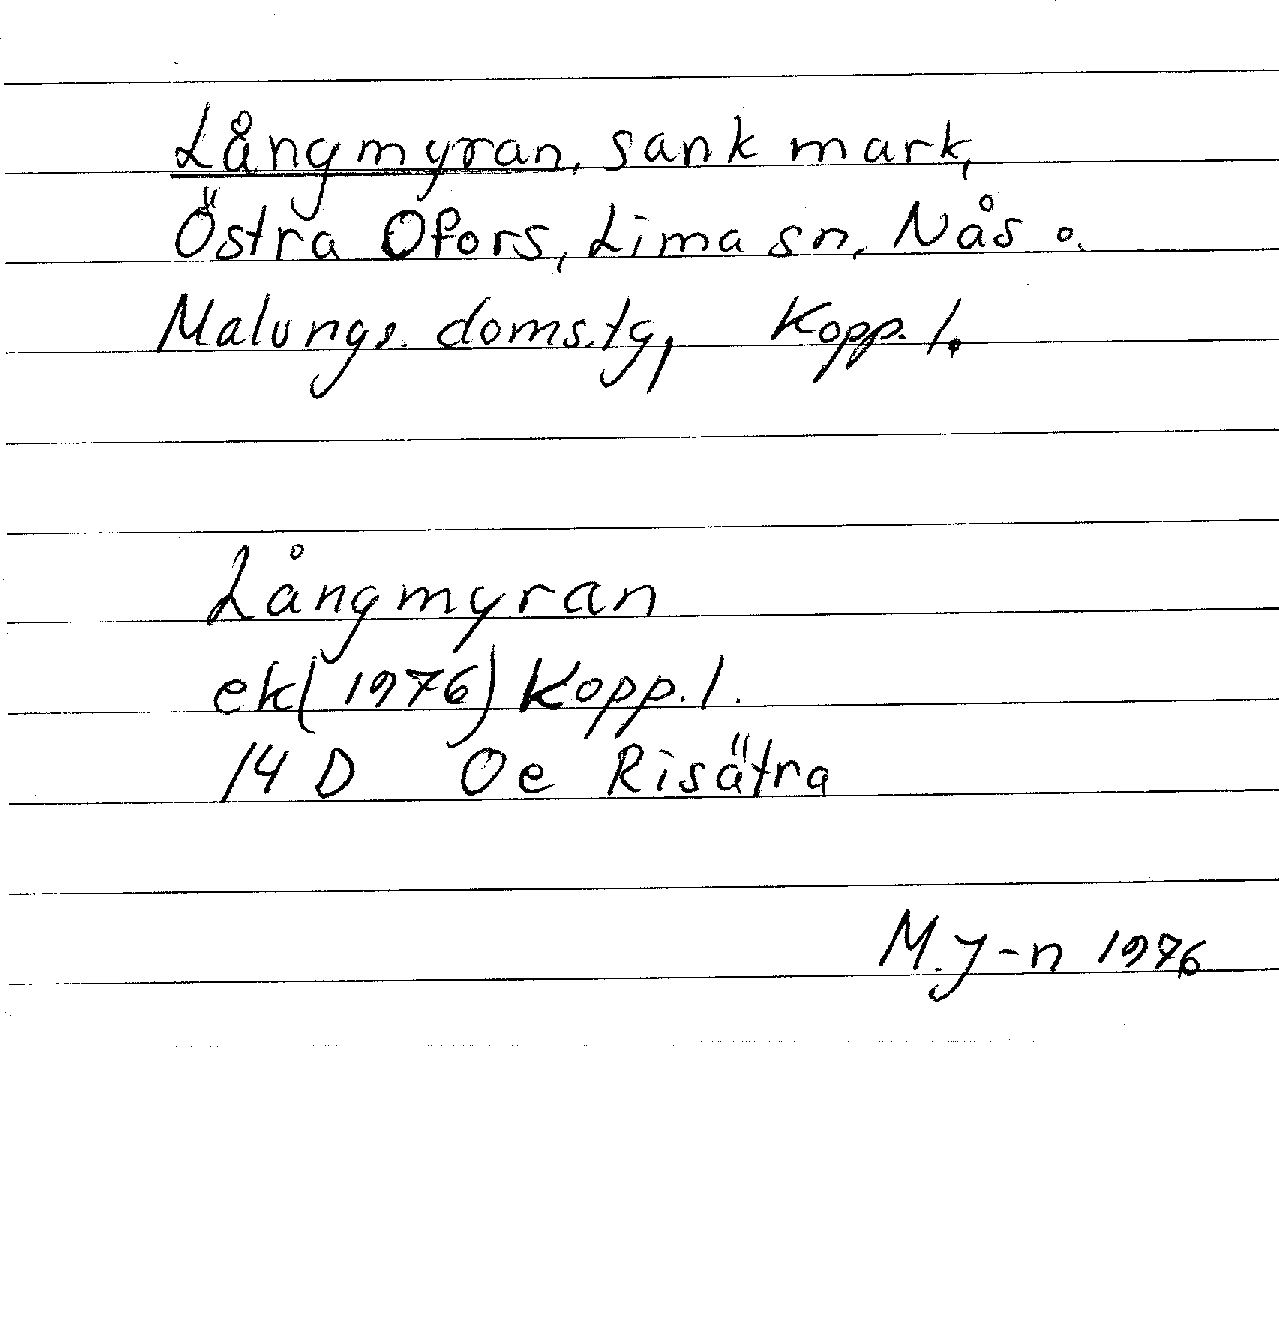 Långmyran, sank mark,
Östra Ofors, Lima sn, Nås o.
Malungs. doms.tg, Kopp. l.
Långmyran
ek(1976) Kopp. l.
14 D Oe Risätra
M. J-n 1976